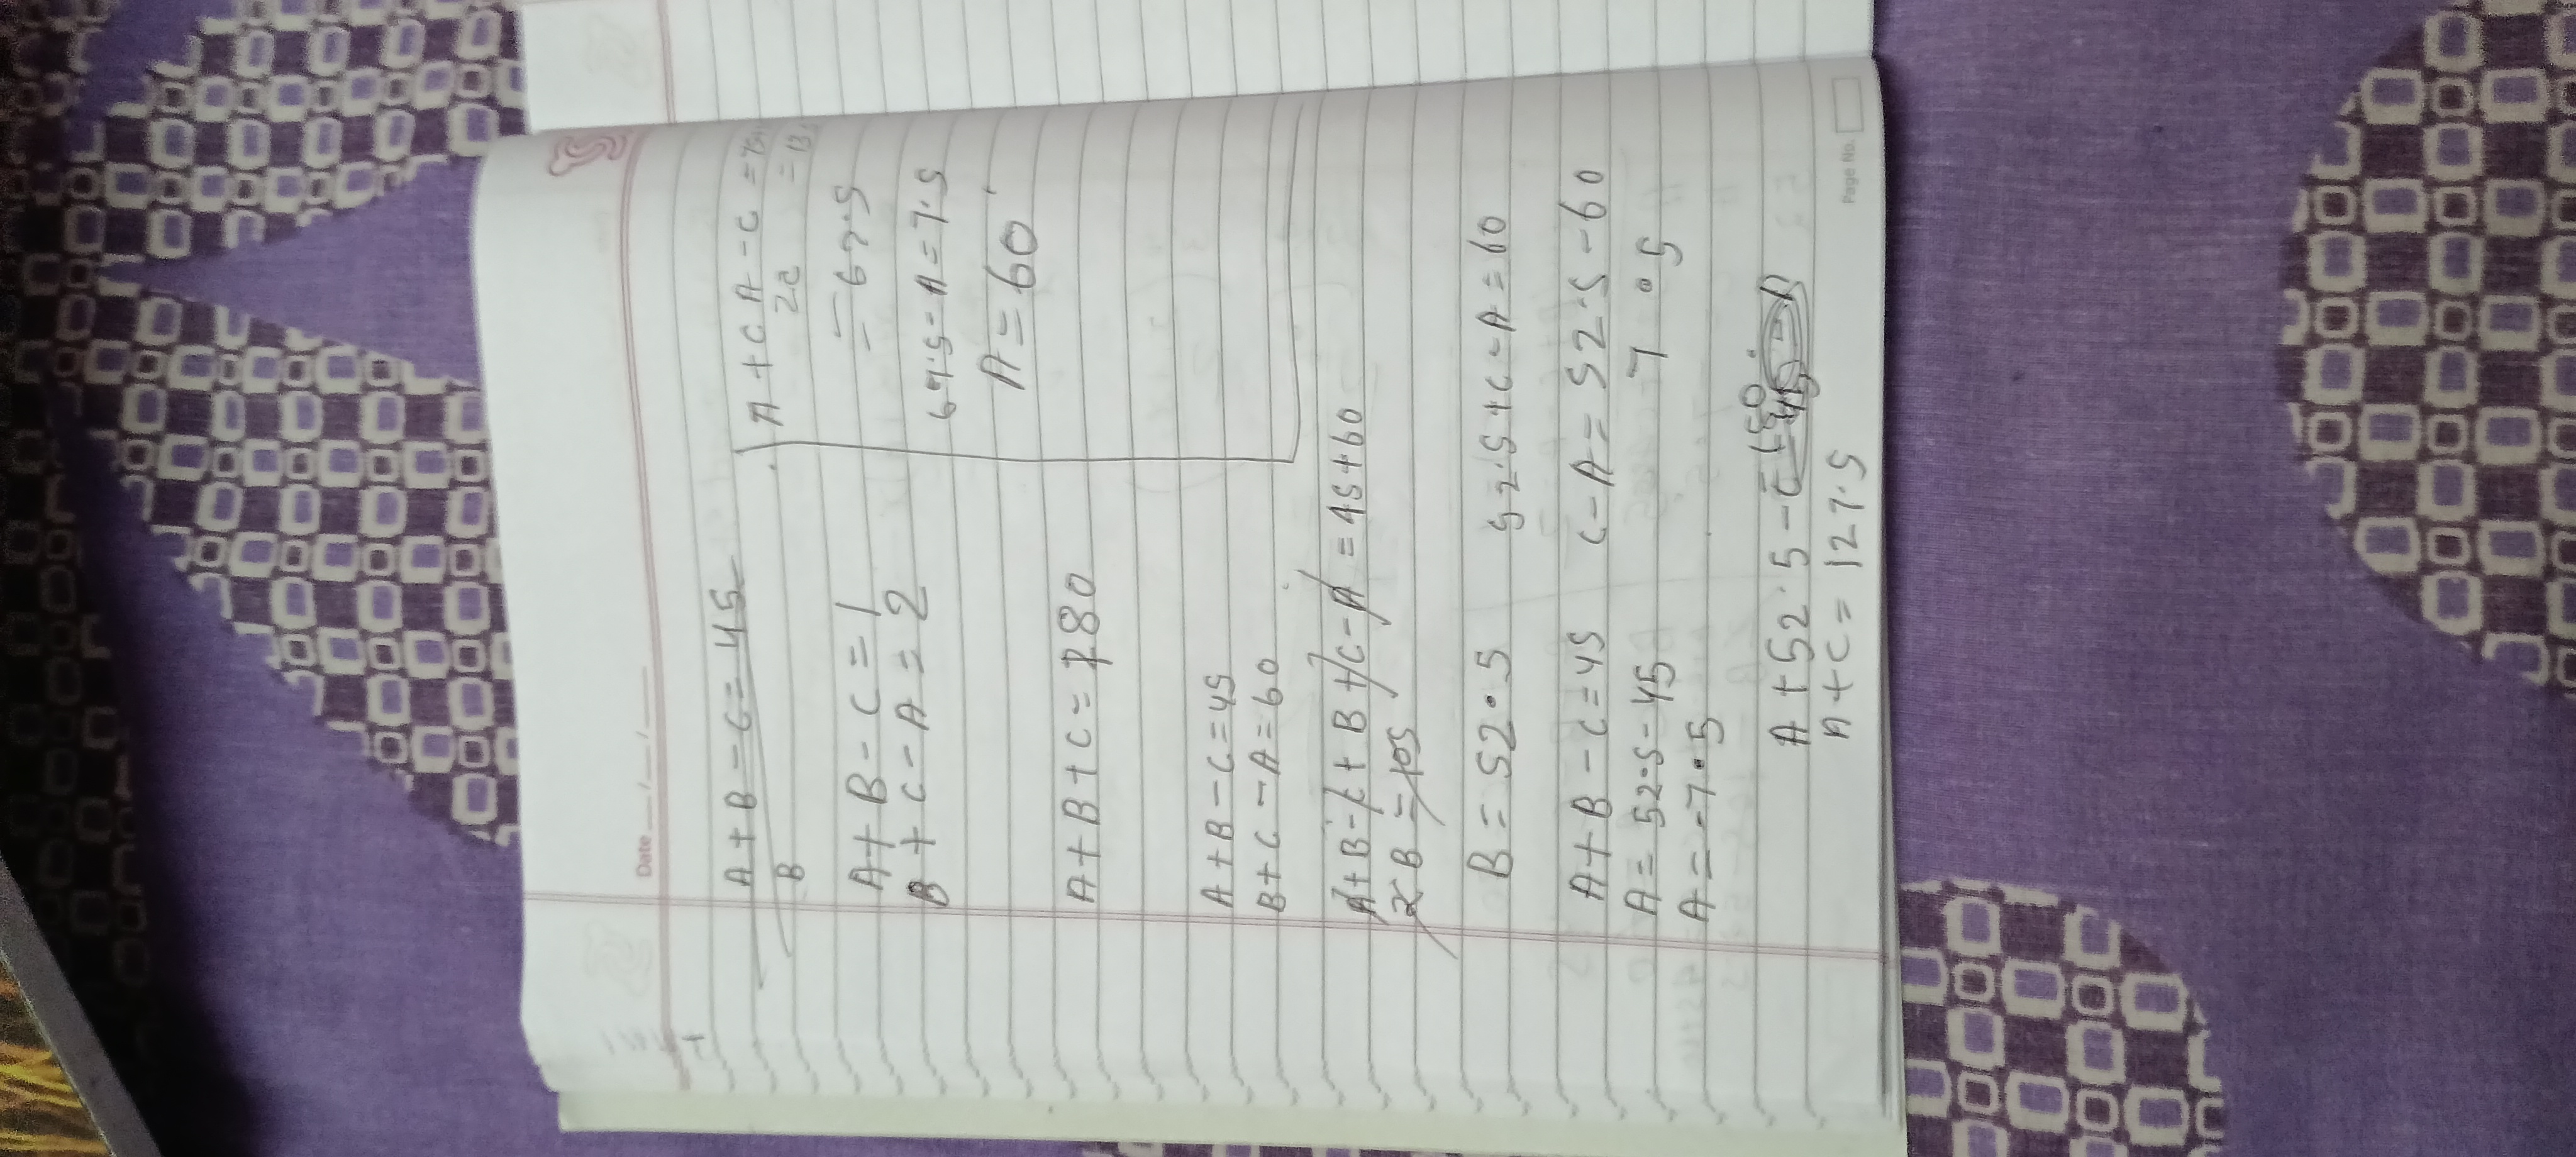 Date
A + B - C = 45
B
A + B - C = 1
B + C - A = 2
A + B + C = 180
A + B - C = 45
B + C - A = 60
A + B - C + B + C - A = 45 + 60
2B = 105
B = 52.5
52.5 + C - A = 60
A + B - C = 45
C - A = 52.5 - 60
A = 52.5 - 45
7.5
A = -7.5
A + 52.5 - C
A + C = 127.5
A + C A - C
2C
= 67.5
67.5 - A = 7.5
A = 60
Page No.